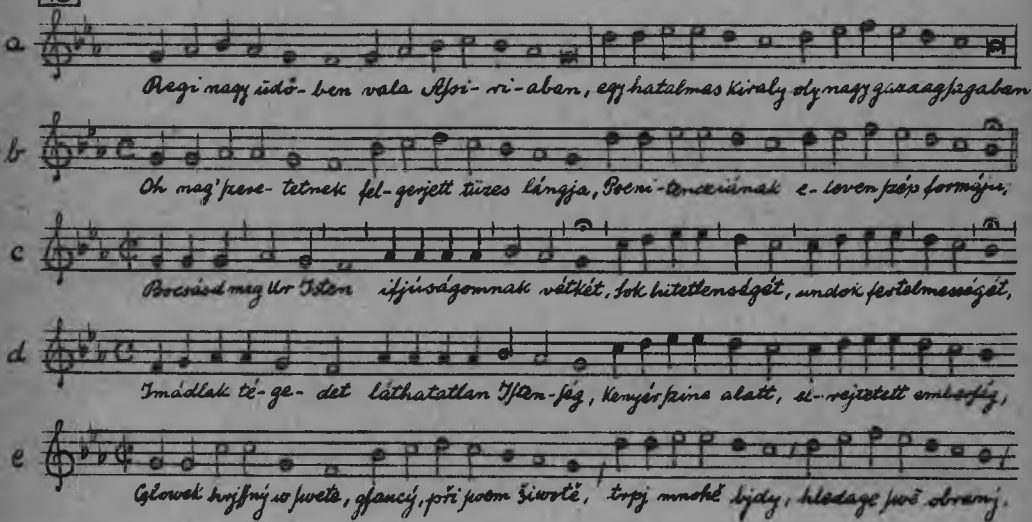 a
Regi nagy üdő-ben vala Aſsi-ri-aban, egy hatalmas kiraly oly nagy gazdagſagaban
b
Oh nag' ſzere-tetnek fel-gerjett tüzes lángja, Poeni-tencziának e-leven ſzép formája,
c
Bocsásd meg Ur Isten ifjúságomnak vétkét, ſok hitetlenségét, undok fertelmességét,
d
Imádlak té-ge-det láthatatlan Iſten-ſég, Kenyér ſzine alatt, el-rejtetett emberſég,
e
Cžlowěk hřjſſný w ſwete, gſaucý, při ſwem žiwotě, trpj mnohé bjdy, hledage ſwé obrany.